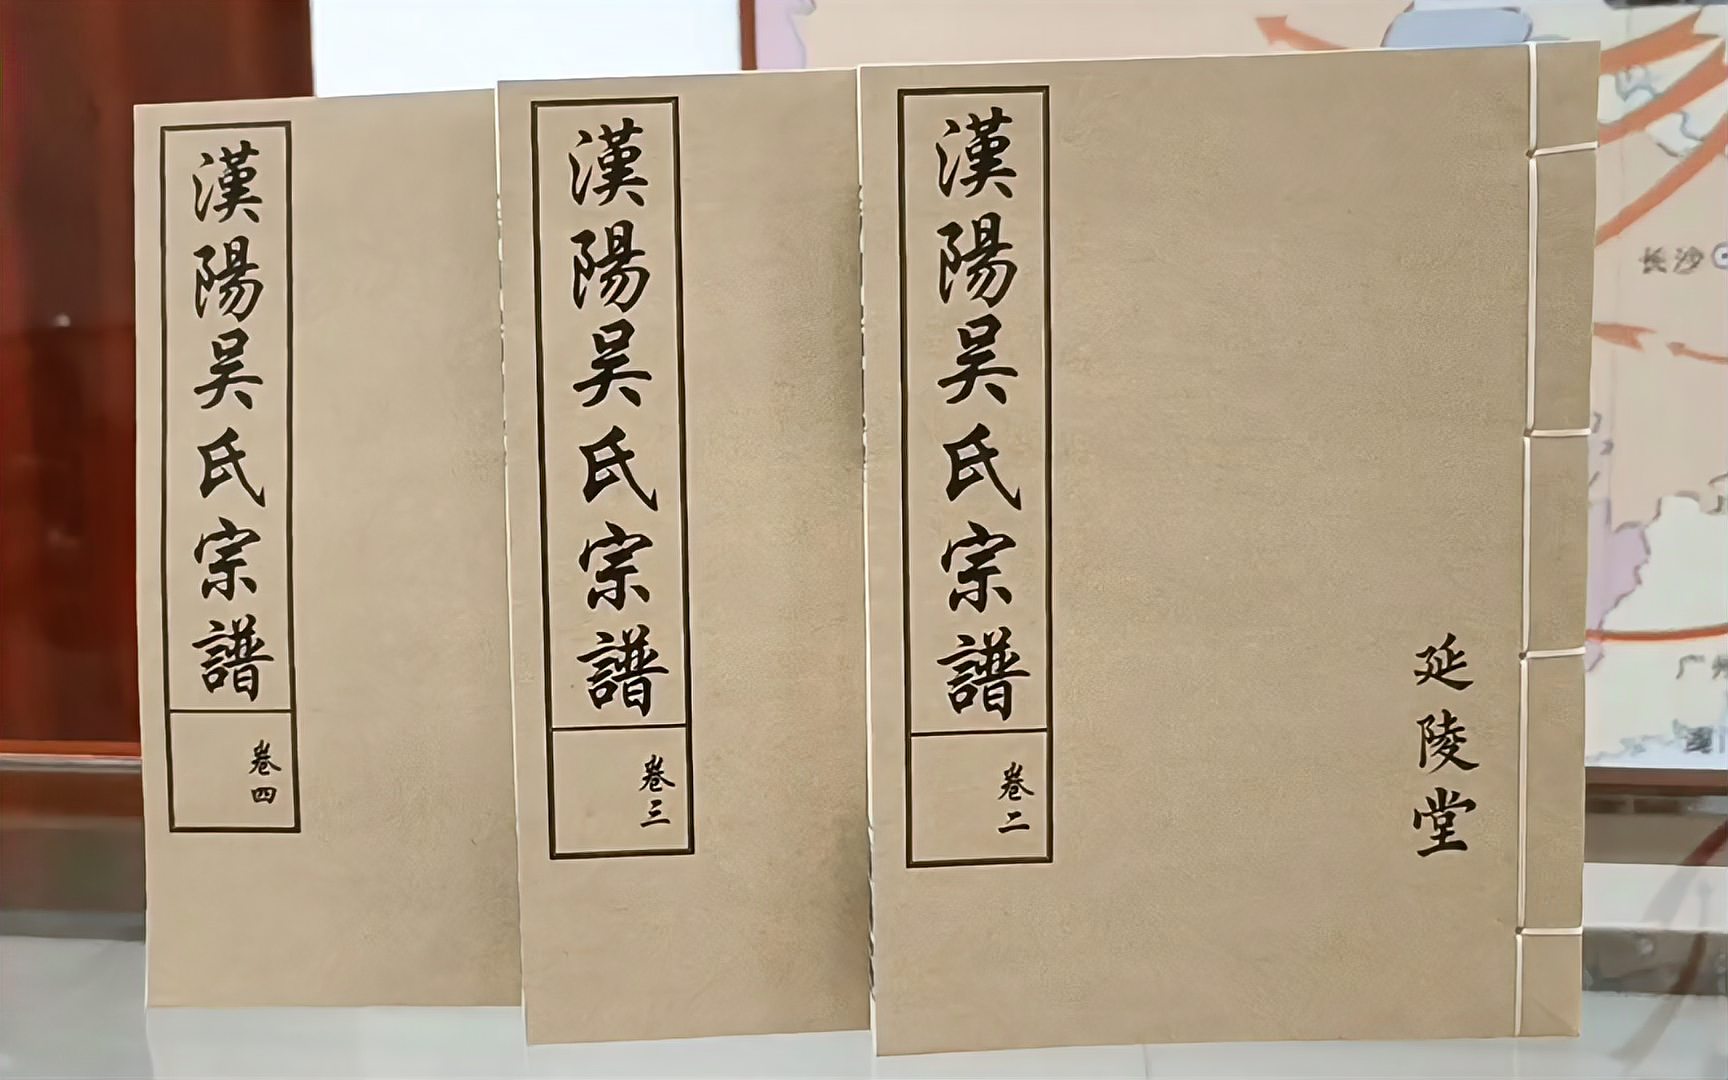 漢陽吴氏宗譜
卷四
漢陽吴氏宗譜
卷三
漢陽吴氏宗譜
卷二
延陵堂
长沙
广州